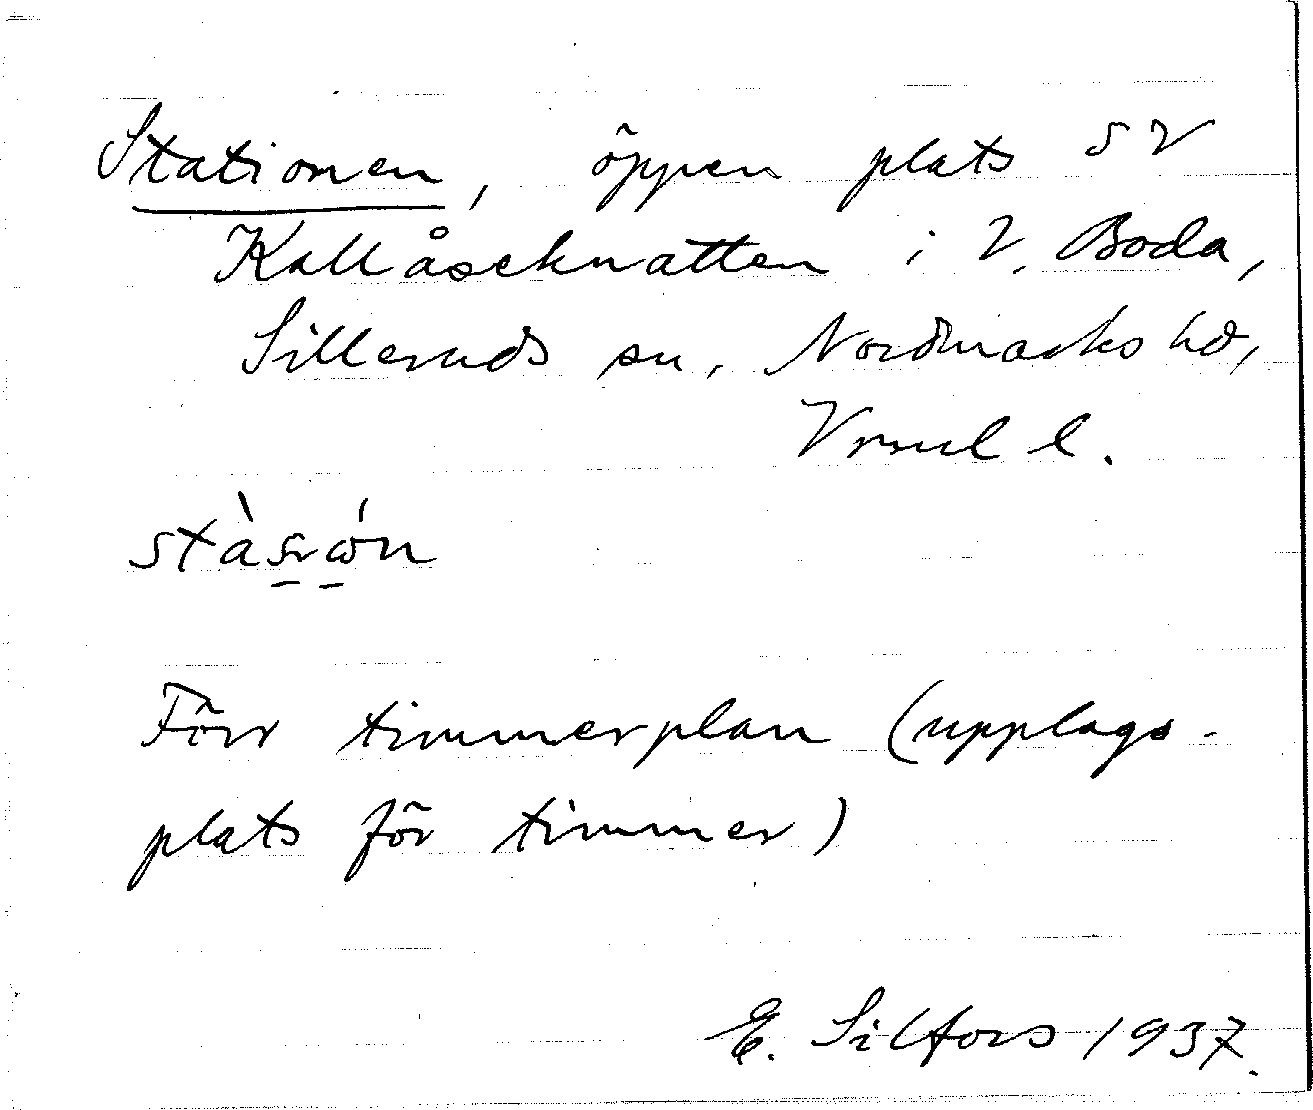 Stationen, öppen plats SV
Kallåseknatten i V. Boda,
Silleruds sn, Nordmarks hd,
Vrml l.
Förr timmerplan (upplags-
plats för timmer)
E. Silfors 1937.